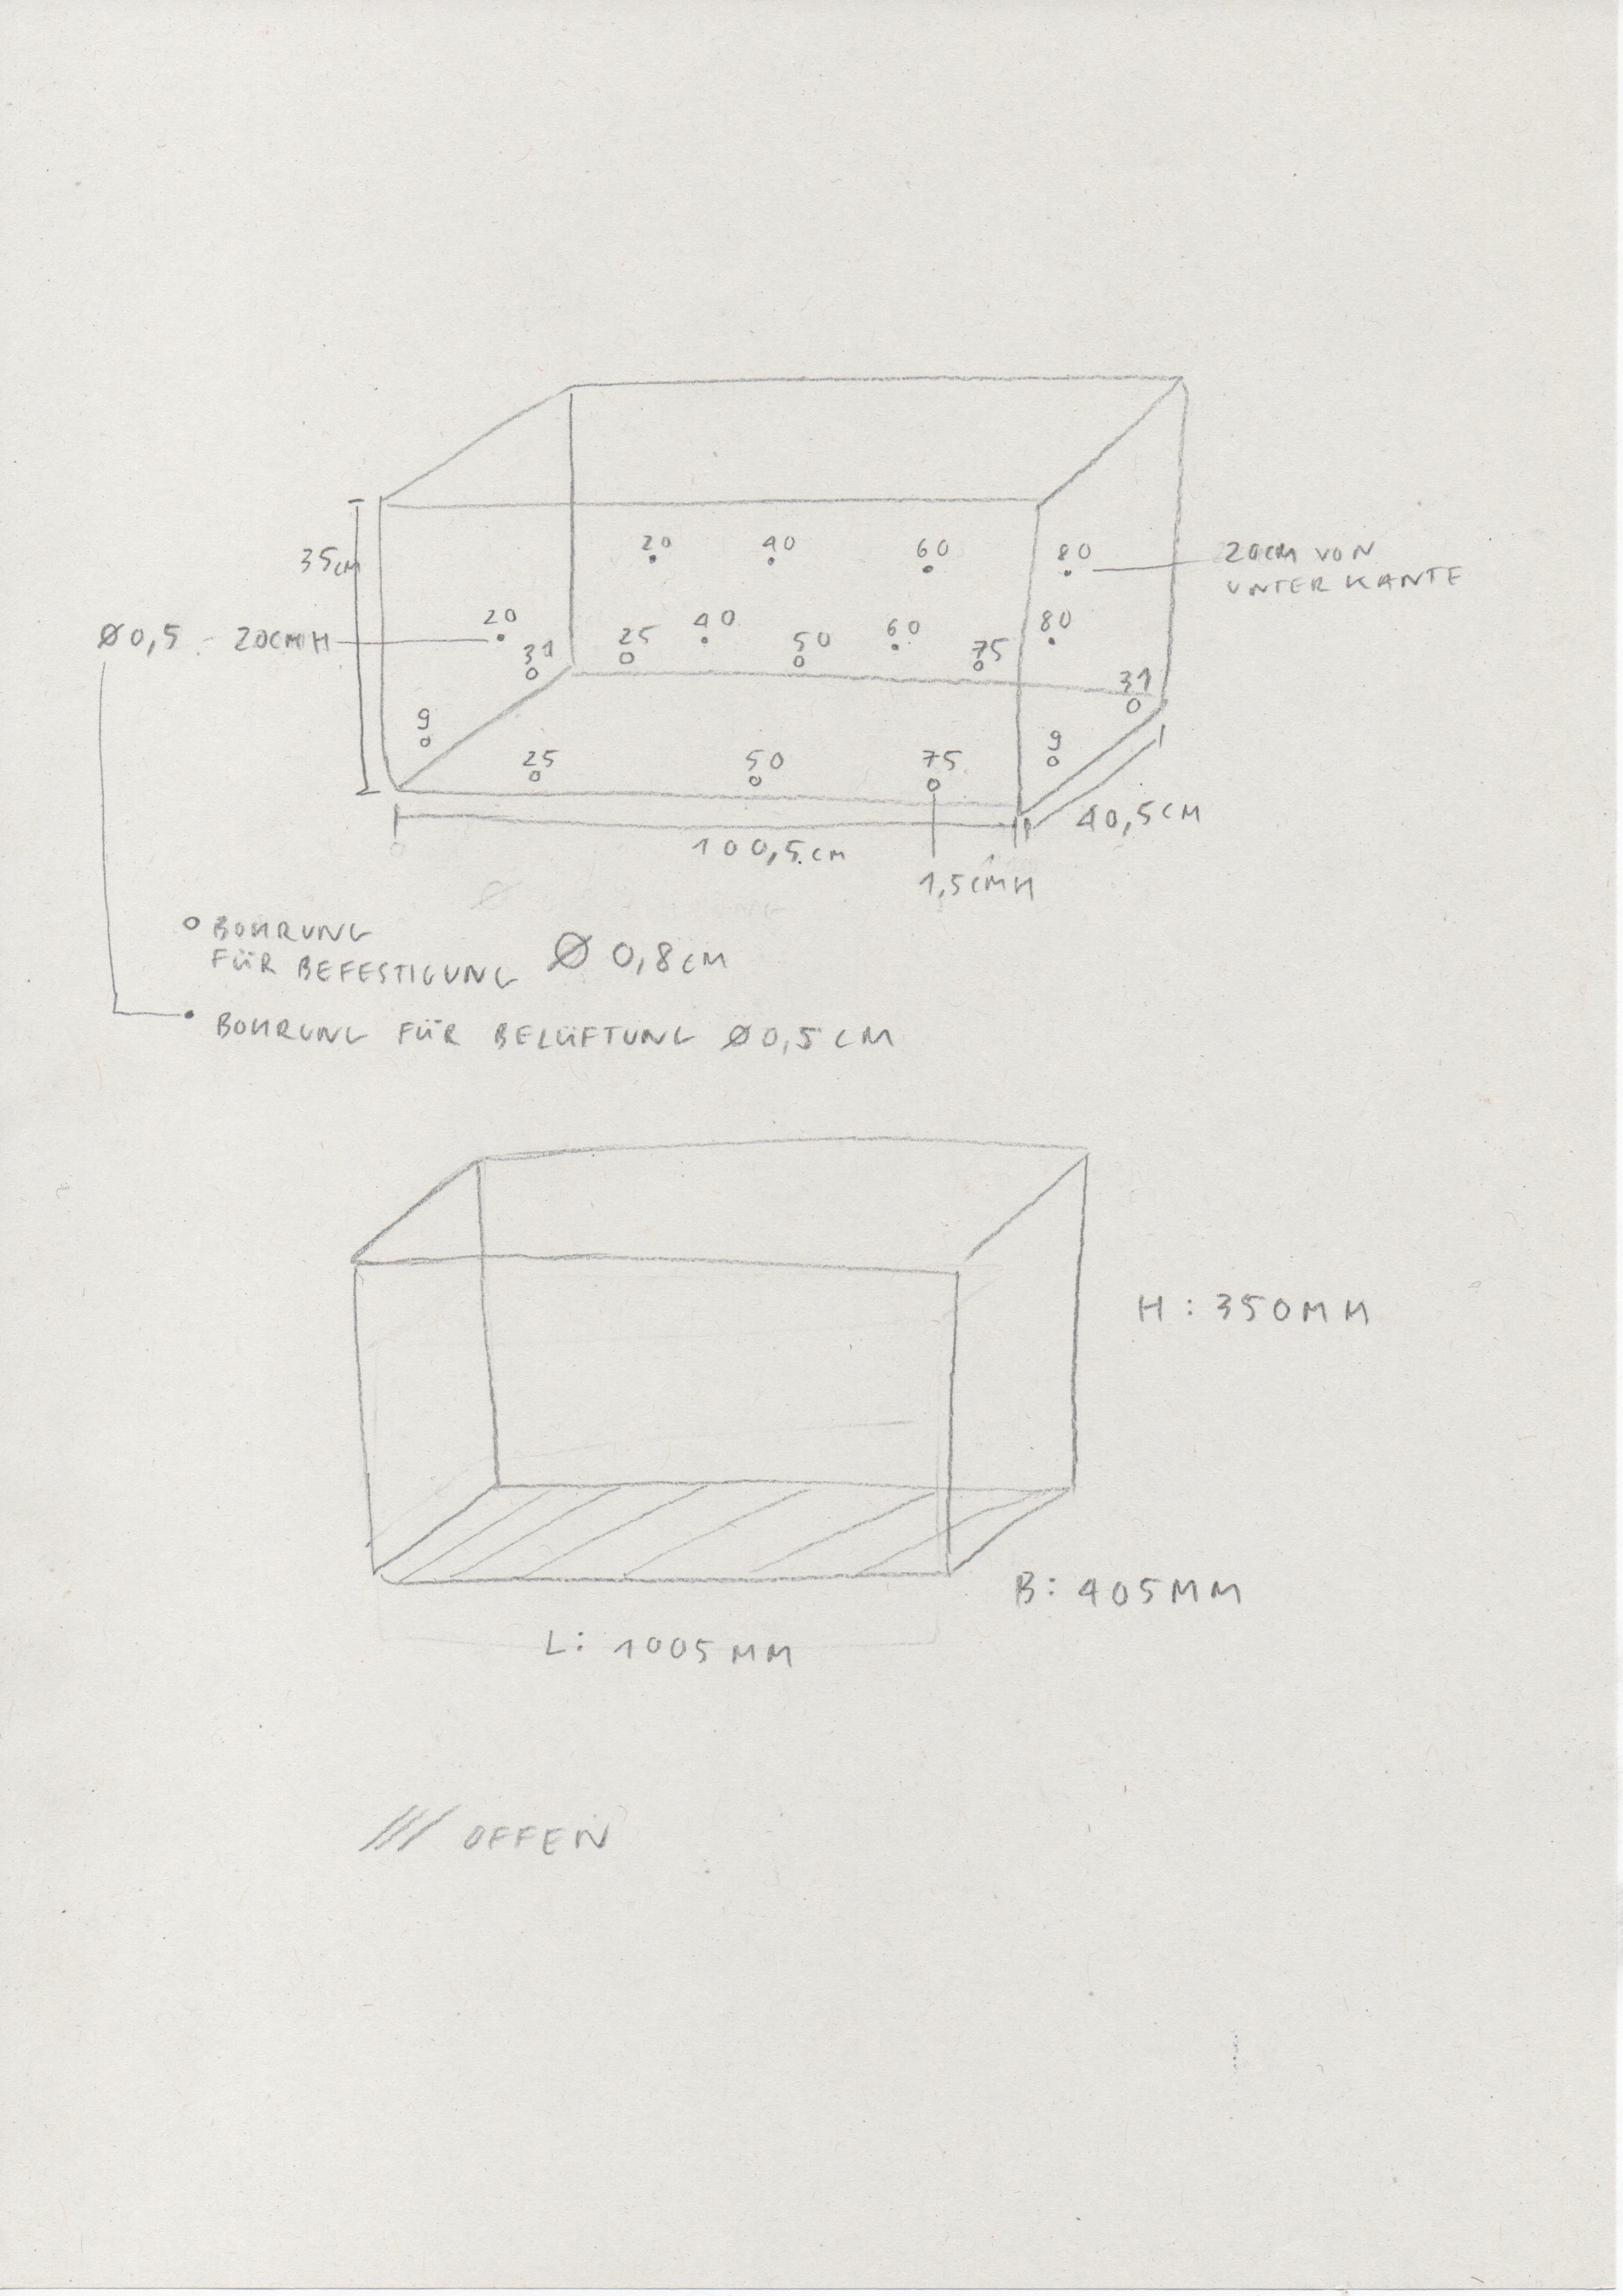 20 40 60 80
20CM VON
UNTERKANTE
35CM
Ø0,5 - 20CM H
20 40 60 80
31 25 50 75 31
9 9
25 50 75
100,5CM
40,5CM
1,5CM H
BOHRUNG
FÜR BEFESTIGUNG Ø 0,8CM
BOHRUNG FÜR BELÜFTUNG Ø0,5CM
H: 350MM
B: 405MM
L: 1005MM
/// OFFEN